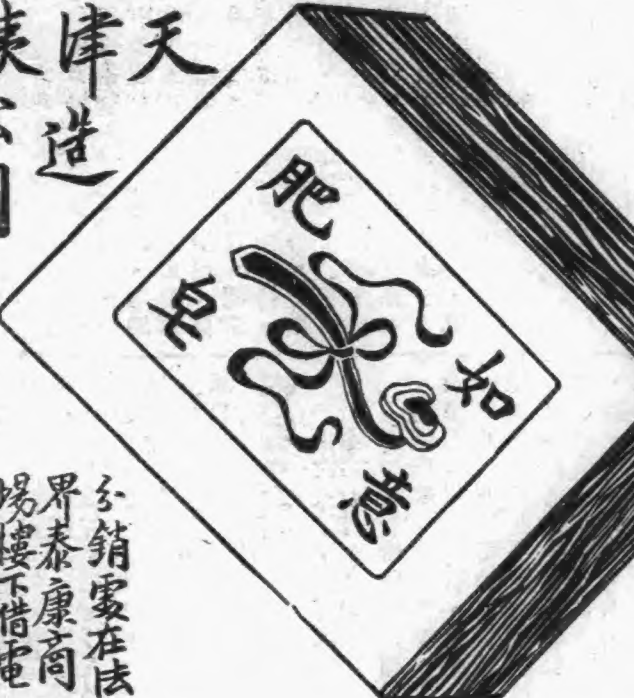 天
津造
肥
皂
如
意
分銷處在法
界泰康商
場樓下借電